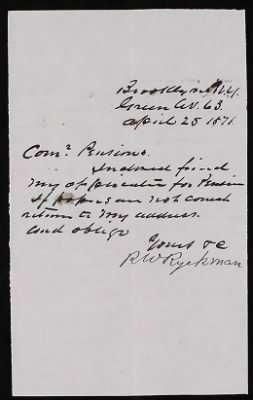 Brooklyn N.Y.
Green Av. 63.
April 25 1871.
Comr. Pensions.
Inclosed find
my application for Pension
If papers are not correct
return to my address.
and oblige
Yours &c
R W Ryckman